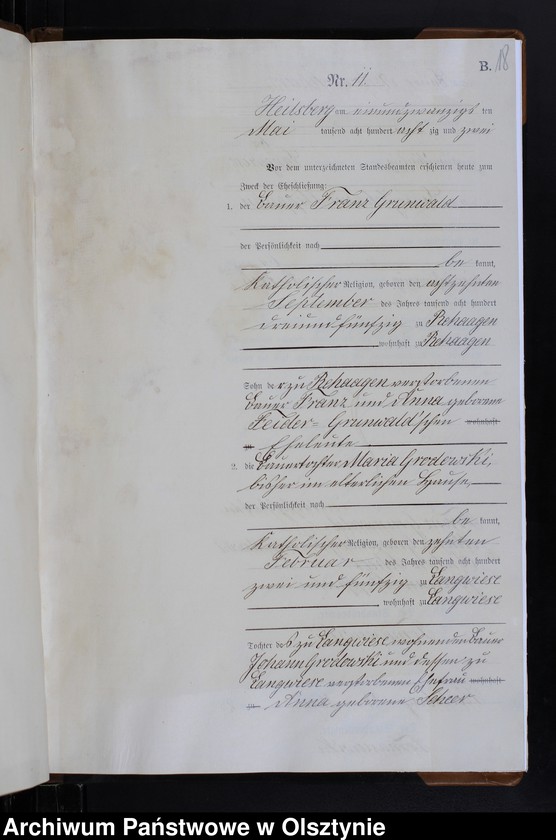 B. 18
Nr. 11.
Heilsberg am einundzwanzigsten
Mai tausend acht hundert achtzig und zwei
Vor dem unterzeichneten Standesbeamten erschienen heute zum
Zweck der Eheschließung:
1. der Bauer Franz Grunwald
der Persönlichkeit nach
be kannt,
Katholischer Religion, geboren den achtzehnten
September des Jahres tausend acht hundert
dreiundfünfzig zu Rehaagen
wohnhaft zu Rehaagen
Sohn der zu Rehaagen verstorbenen
Bauer Franz und Anna geborene
Feider= Grunwald'schen wohnhaft
zu Eheleute
2. die Bauertochter Maria Grodowski,
bisher im elterlichen Hause,
der Persönlichkeit nach
be kannt,
Katholischer Religion, geboren den zehnten
Februar des Jahres tausend acht hundert
zwei und fünfzig zu Langwiese
wohnhaft zu Langwiese
Tochter des zu Langwiese wohnenden Bauer
Johann Grodowski und dessen zu
Langwiese verstorbenen Ehefrau wohnhaft
zu Anna geborene Scheer
Archiwum Państwowe w Olsztynie